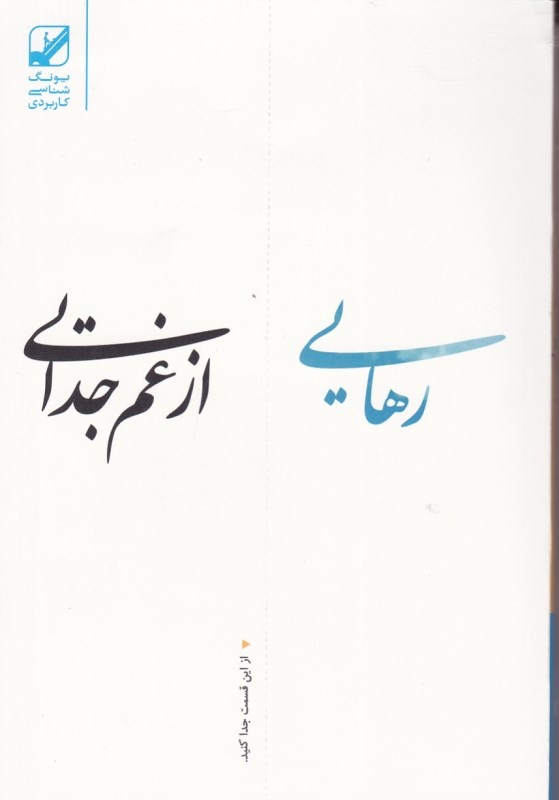 یونگ
شناسی
کاربردی
رهایی
از غم جدایی
از این قسمت جدا کنید.